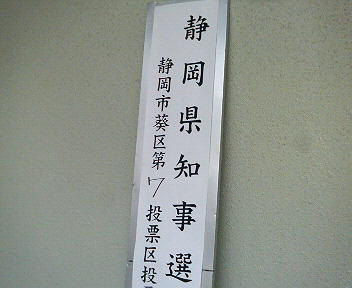 静岡県知事選
静岡市葵区第7投票区投